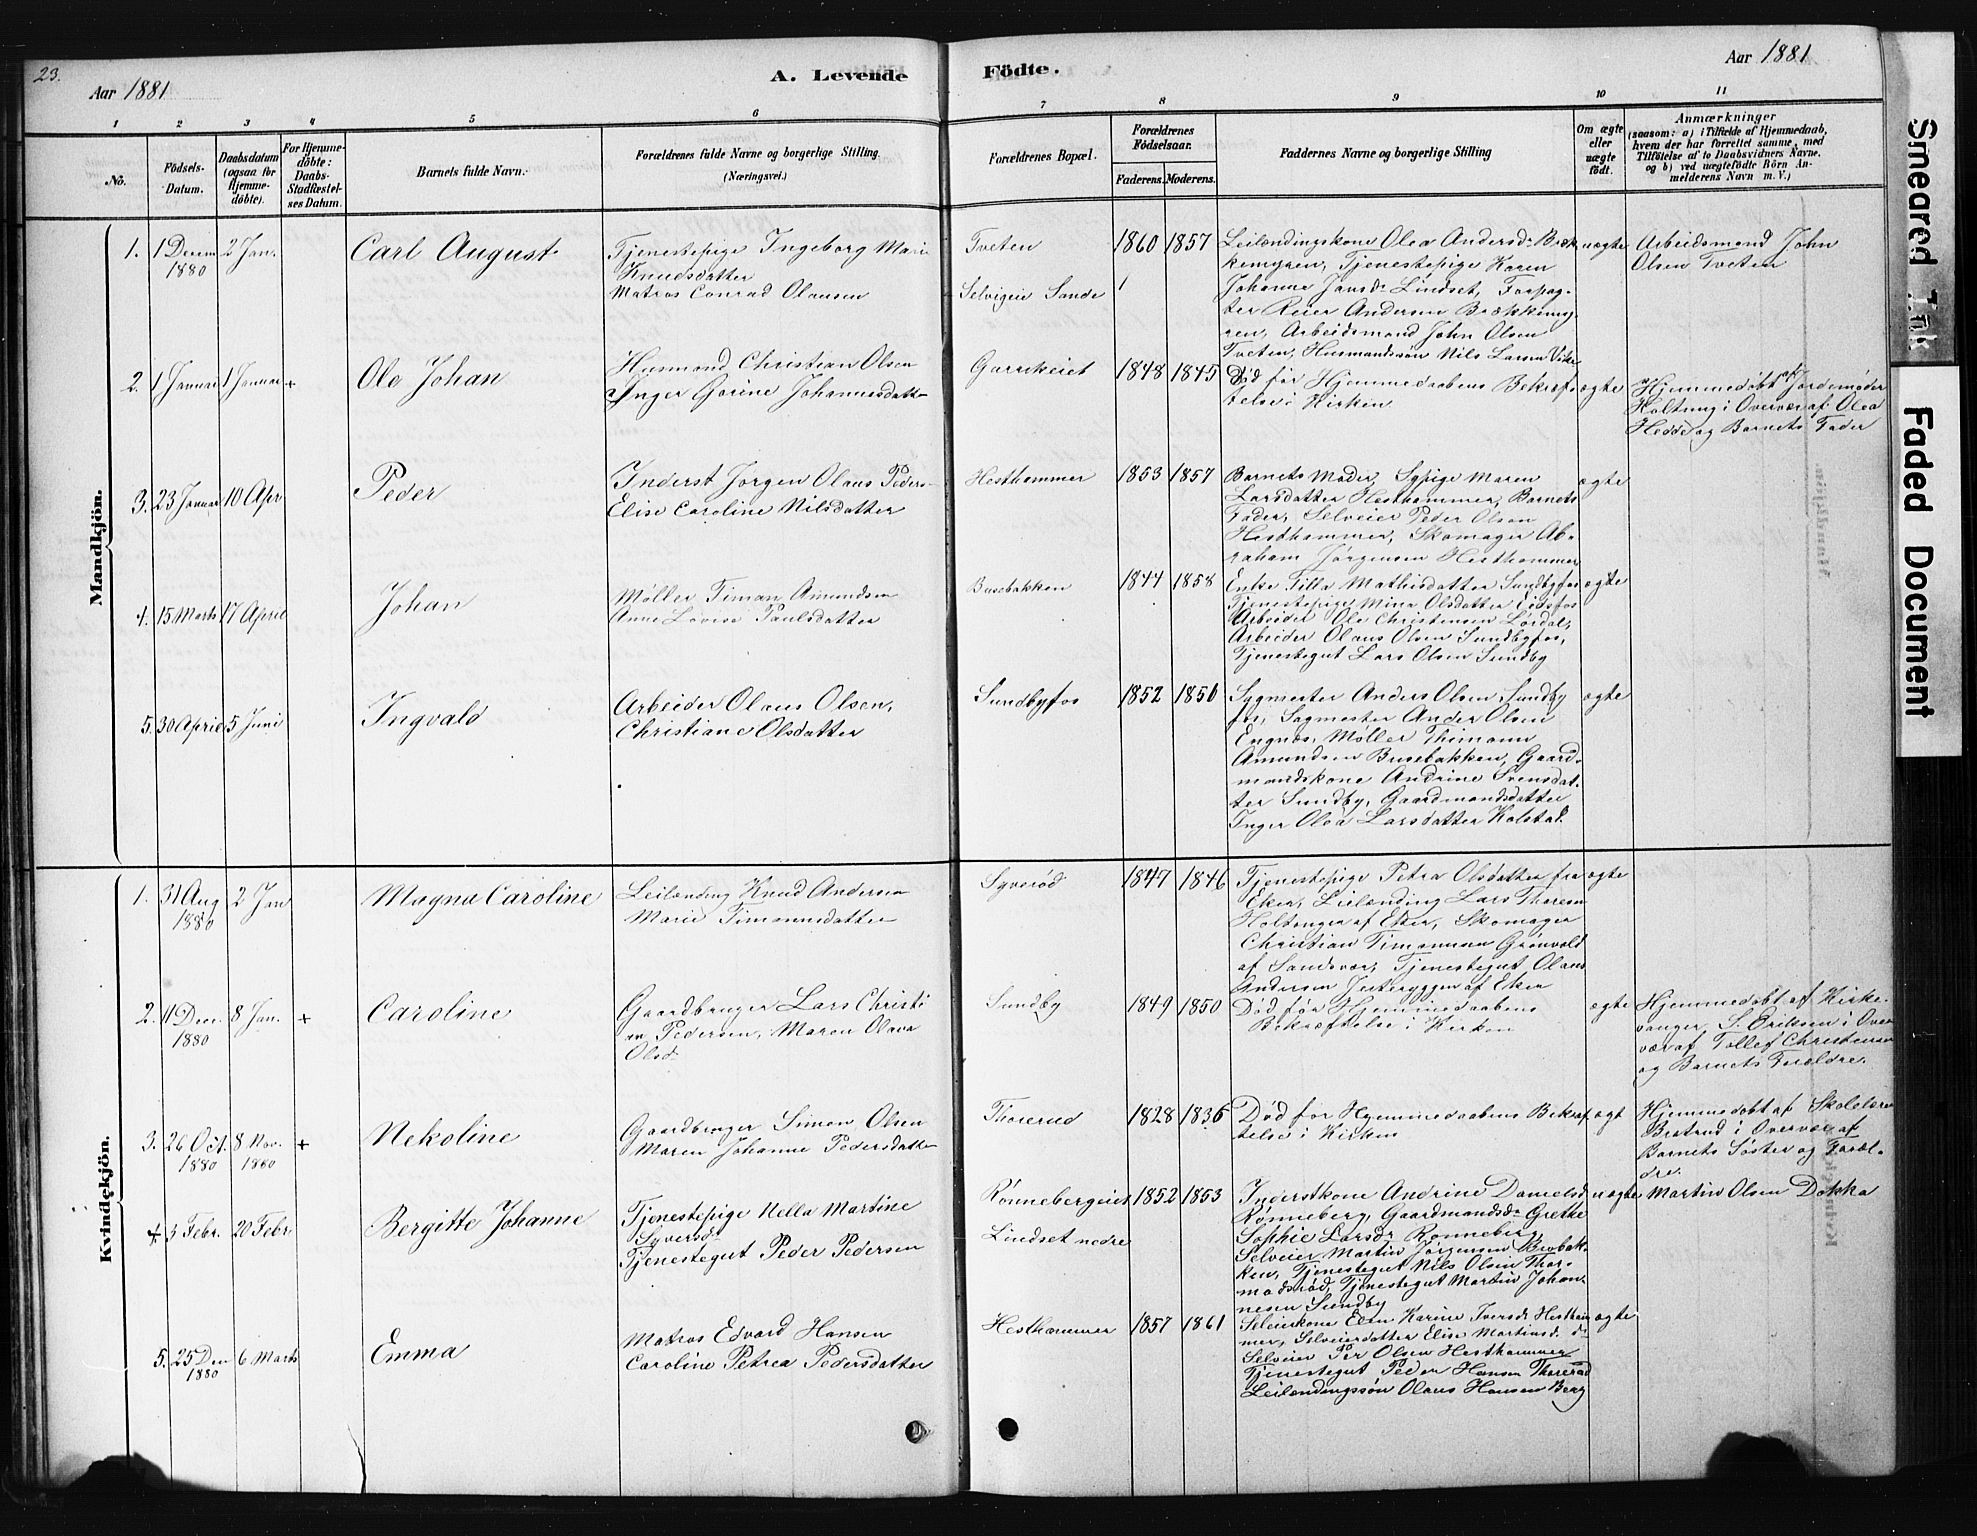 23.
Aar 1881
A. Levende
Födte.
Aar 1881
1 2 3 4 5 6 7 8 9 10 11
No.
Födsels-
Datum.
Daabsdatum
(ogsaa for
Hjemme-
döbte).
For Hjemme-
döbte:
Daabs-
Stadfæstel-
ses Datum.
Barnets fulde Navn.
Forældrenes fulde Navne og borgerlige Stilling
(Næringsvei.)
Forældrenes Bopæl.
Forældrenes
Födselsaar.
Faderens. Moderens.
Faddernes Navne og borgerlige Stilling
Om ægte
eller
uægte
födt.
Anmærkninger
(saasom: a) i Tilfælde af Hjemmedaab,
hvem der har forrettet samme, med
Tilföielse af to Daabsvidners Navne,
og b) ved uægtefödte Börn An-
melderens Navn m. V.)
Mandkjön.
1. 1 Decem 1880
2 Jan.
Carl August
Tjenestepige Ingeborg Mari
Knudsdatter
Matros Conrad Olausen
Tveten
Selvigeie Sande
1860 1857
Leilændingskone Olea Andersdr Bræk-
kemyren, Tjenestepige Karen
Johanne Jansdr Lindset, Forpag-
ter Reier Andersen Brækkemy-
ren, Arbeidsmand John Olsen
Tveten, Husmandssøn Nils Larsen Vike
uægte
Arbeidsmand John
Olsen Tveten
2. 1 Januar 1 Januar +
Ole Johan
Husmand Christian Olsen
Inger Gorine Johannesdatter
Garnkeiet
1848 1845
Død før Hjemmedaabens Bekræf-
telse i Kirken
ægte
Hjemmedøbt af Jordemoder
Holtung i Overvær af Olea
Hedde og Barnets Fader
3. 23 Januar 10 Apr
Peder
Inderst Jørgen Olaus Peders-
Elise Caroline Nilsdatter
Hesthammer
1853 1857
Barnets Moder, Sypige Maren
Larsdatter Hesthammer, Barnets
Fader, Selveier Peder Olsen
Hesthammer, Skomager Ab-
raham Jørgensen Hesthammer
ægte
4. 15 Marts 17 April
Johan
Møller Timan Amundsen
Anne Lovise Paulsdatter
Busebakken
1844 1858
Enke Tilla Mathisdatter Sundbyfos
Tjenestepige Mina Olsdatter Eidsfos
Arbeider Ole Christensen Lørdal,
Arbeider Olaus Olsen Sundbyfos,
Tjenestegut Lars Olsen Sundby
ægte
5. 30 April 5 Juni
Ingvald
Arbeider Olaus Olsen,
Christiane Olsdatter
Sundbyfos
1852 1850
Sagmester Anders Olsen Sundby
fos, Sagmester Ander Olsen
Engnæs, Møller Thimann
Amundsen Busebakken, Gaard-
mandskone Andrine Svensdat-
ter Sundby, Gaardmandsdatter
Inger Olea Larsdatter Kolstad.
ægte
Kvindekjön.
1. 31 Aug 1880
2 Jan
Magna Caroline
Leilænding Knud Andersen
Marie Timannsdatter
Syverød
1847 1846
Tjenestepige Petra Olsdatter fra
Eker, Leilænding Lars Thoresen
Holtungen af Eker, Skomager
Christian Timannsen Grønvold
af Sandsvær, Tjenestegut Olaus
Andersen Jesteryggen af Eker
ægte
2. 11 Dec. 1880
8 Jan. +
Caroline
Gaardbruger Lars Christi
an Pedersen, Maren Olava
Olsd.
Sundby
1849 1850
Død før Hjemmedaabens
Bekræftelse i Kirken
ægte
Hjemmedøbt af Kirke-
sanger S. Eriksen i Over-
vær af Tollef Christensen
og Barnets Forældre.
3. 26 Oct. 1880
8 Nov. 1880 +
Nekoline
Gaardbruger Simon Olsen
Maren Johanne Pedersdatter
Thorerud
1828 1836
Død før Hjemmedaabens Bekræf-
telse i Kirken
ægt
Hjemmedøbt af Skolelærer
Bratrud i Overvær af
Barnets Søster og Foræl-
dre.
4. 3 Febr. 20 Febr
Bergitte Johanne
Tjenestepige Nella Martine
Syversd.
Tjenestegut Peder Pedersen
Rønnebergeiet
Lindset nedre
1852 1853
Inderstkone Andrine Danielsd
Rønneberg, Gaardmandsdr Grethe
Sophie Larsdr Rønneberg,
Selveier Martin Jørgensen Brobak-
ken, Tjenestegut Nils Olsen Thor-
modsrød, Tjenestegut Martin Johan-
nesen Sundby
uægte
Martin Olsen Dokka
5. 25 Dec 1880
6 Marts
Emma
Matros Edvard Hansen
Caroline Petrea Pedersdatter
Hesthammer
1857 1861
Seleierkone Elen Karine Iversdr Hestham
mer, Selveierdatter Elise Martinsd. do
Selveier Per Olsen Hesthammer
Tjenestegut Peder Hansen Thorerud
Leilændingssøn Olaus Hansen Berg
ægte
Smeared Ink
Faded Document